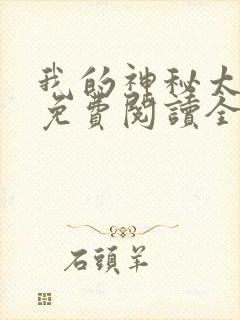 我的神秘大
免費閱讀全
石頭羊